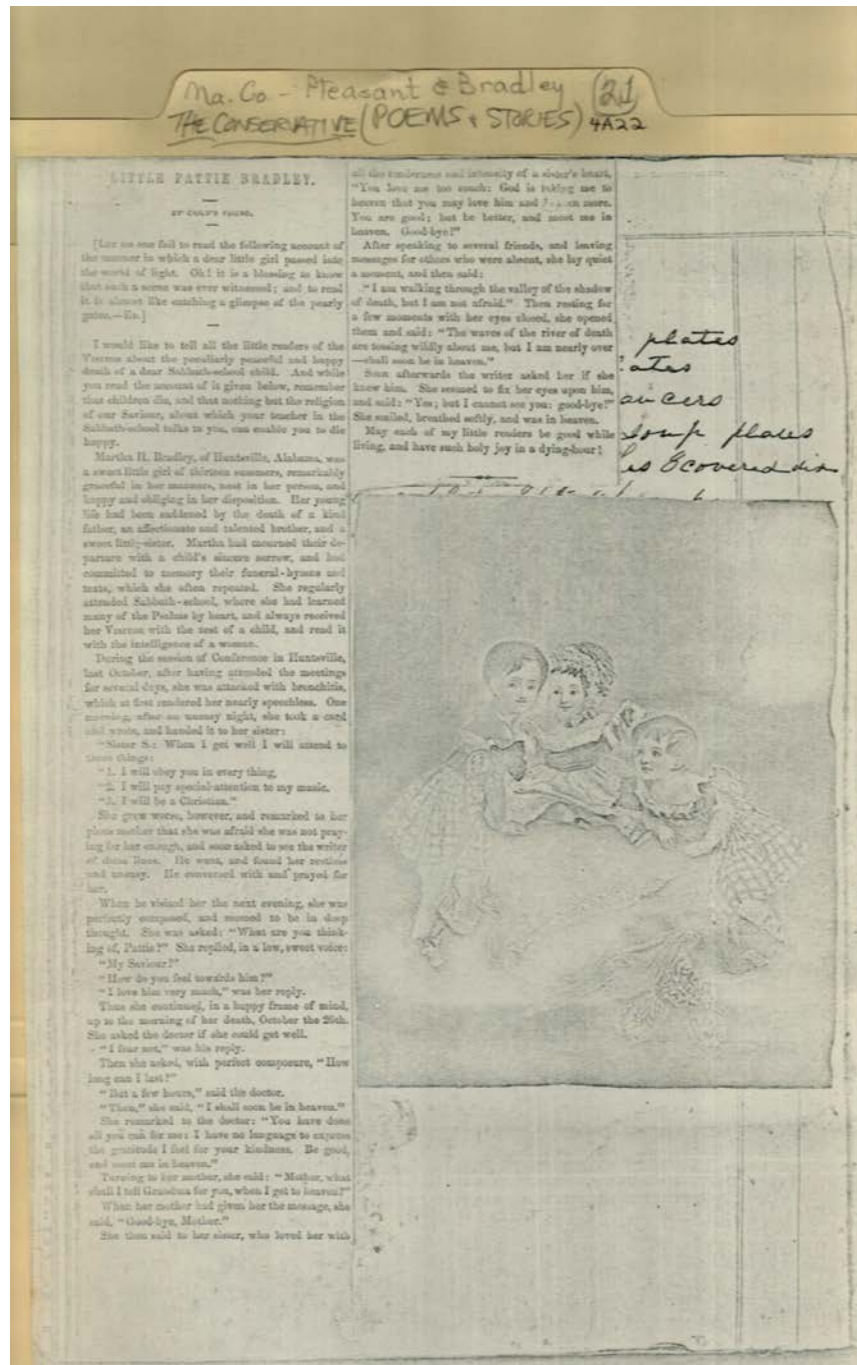 Ma. Co - Pleasant & Bradley (21)
THE CONSERVATIVE (POEMS & STORIES) 4A22
LITTLE PATTIE BRADLEY.
[Let no one fail to read the following account of
the manner in which a dear little girl passed into
the world of light. Oh! it is a blessing to know
that such a scene was ever witnessed; and to read
it is almost like catching a glimpse of the pearly
gates.—Ed.]
I would like to tell all the little readers of the
Visitor about the peculiarly peaceful and happy
death of a dear Sabbath-school child. And while
you read the account of it given below, remember
that children die, and that nothing but the religion
of our Saviour, about which your teacher in the
Sabbath-school talks to you, can enable you to die
happy.
Martha H. Bradley, of Huntsville, Alabama, was
a sweet little girl of thirteen summers, remarkably
graceful in her manners, neat in her person, and
happy and obliging in her disposition. Her young
life had been saddened by the death of a kind
father, an affectionate and talented brother, and a
sweet little sister. Martha had mourned their de-
parture with a child's sincere sorrow, and had
committed to memory their funeral-hymns and
texts, which she often repeated. She regularly
attended Sabbath-school, where she had learned
many of the Psalms by heart, and always received
her Visitor with the zest of a child, and read it
with the intelligence of a woman.
During the session of Conference in Huntsville,
last October, after having attended the meetings
for several days, she was attacked with bronchitis,
which at first rendered her nearly speechless. One
morning, after an uneasy night, she took a card
and wrote, and handed it to her sister:
"Sister S.: When I get well I will attend to
three things:
"1. I will obey you in every thing,
"2. I will pay special attention to my music.
"3. I will be a Christian."
She grew worse, however, and remarked to her
pious mother that she was afraid she was not pray-
ing for her enough, and soon asked to see the writer
of these lines. He went, and found her restless
and uneasy. He conversed with and prayed for
her.
When he visited her the next evening, she was
perfectly composed, and seemed to be in deep
thought. She was asked: "What are you think-
ing of, Pattie?" She replied, in a low, sweet voice:
"My Saviour!"
"How do you feel towards him?"
"I love him very much," was her reply.
Thus she continued, in a happy frame of mind,
up to the morning of her death, October the 26th.
She asked the doctor if she could get well.
"I fear not," was his reply.
Then she asked, with perfect composure, "How
long can I last?"
"But a few hours," said the doctor.
"Then," she said, "I shall soon be in heaven."
She remarked to the doctor: "You have done
all you can for me: I have no language to express
the gratitude I feel for your kindness. Be good,
and meet me in heaven."
Turning to her mother, she said: "Mother, what
shall I tell Grandma for you, when I get to heaven?"
When her mother had given her the message, she
said, "Good-bye, Mother."
She then said to her sister, who loved her with
all the tenderness and intensity of a sister's heart,
"You love me too much: God is taking me to
heaven that you may love him and heaven more.
You are good; but be better, and meet me in
heaven. Good-bye!"
After speaking to several friends, and leaving
messages for others who were absent, she lay quiet
a moment, and then said:
"I am walking through the valley of the shadow
of death, but I am not afraid." Then resting for
a few moments with her eyes closed, she opened
them and said: "The waves of the river of death
are tossing wildly about me, but I am nearly over
—shall soon be in heaven."
Soon afterwards the writer asked her if she
knew him. She seemed to fix her eyes upon him,
and said: "Yes; but I cannot see you: good-bye!"
She smiled, breathed softly, and was in heaven.
May each of my little readers be good while
living, and have such holy joy in a dying-hour!
plates
ates
aucers
plates
covered dis